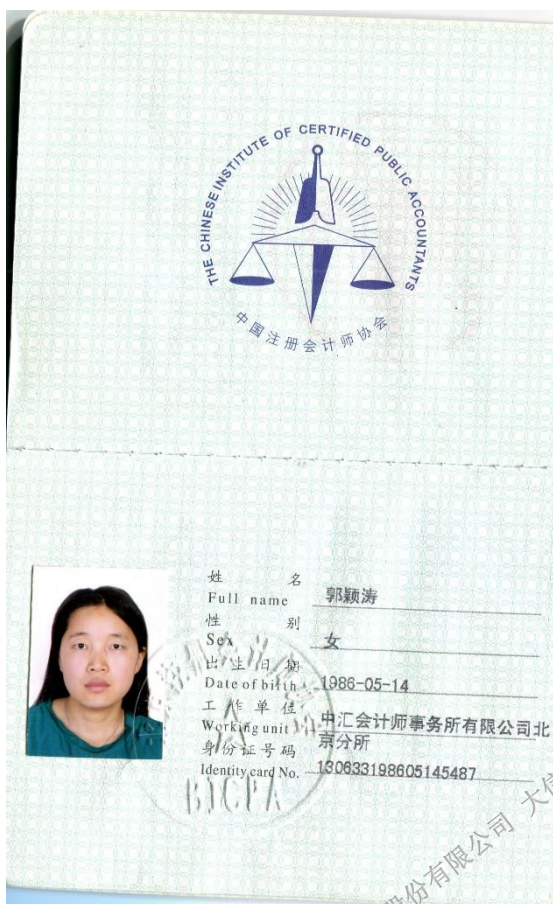 THE CHINESE INSTITUTE OF CERTIFIED PUBLIC ACCOUNTANTS
中国注册会计师协会
姓 名
Full name 郭颖涛
性 别
Sex 女
出生日期
Date of birth 1986-05-14
工作单位
Working unit 中汇会计师事务所有限公司北
京分所
身份证号码
Identity card No. 130633198605145487
BICPA
股份有限公司 大信